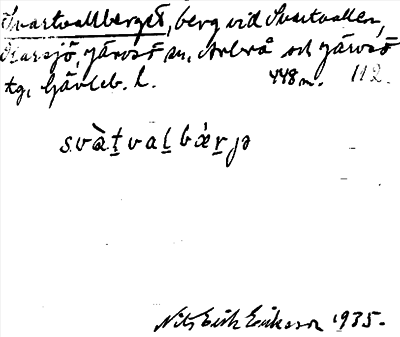 Svartvallberget, berg vid Svartvallen,
Karsjö, Järvsö sn, Arbrå och Järvsö
tg, Gävleb. l. 448 m. 112.
svàt̲valb̲ǽr̲jə
Nils Erik Eriksson 1935.